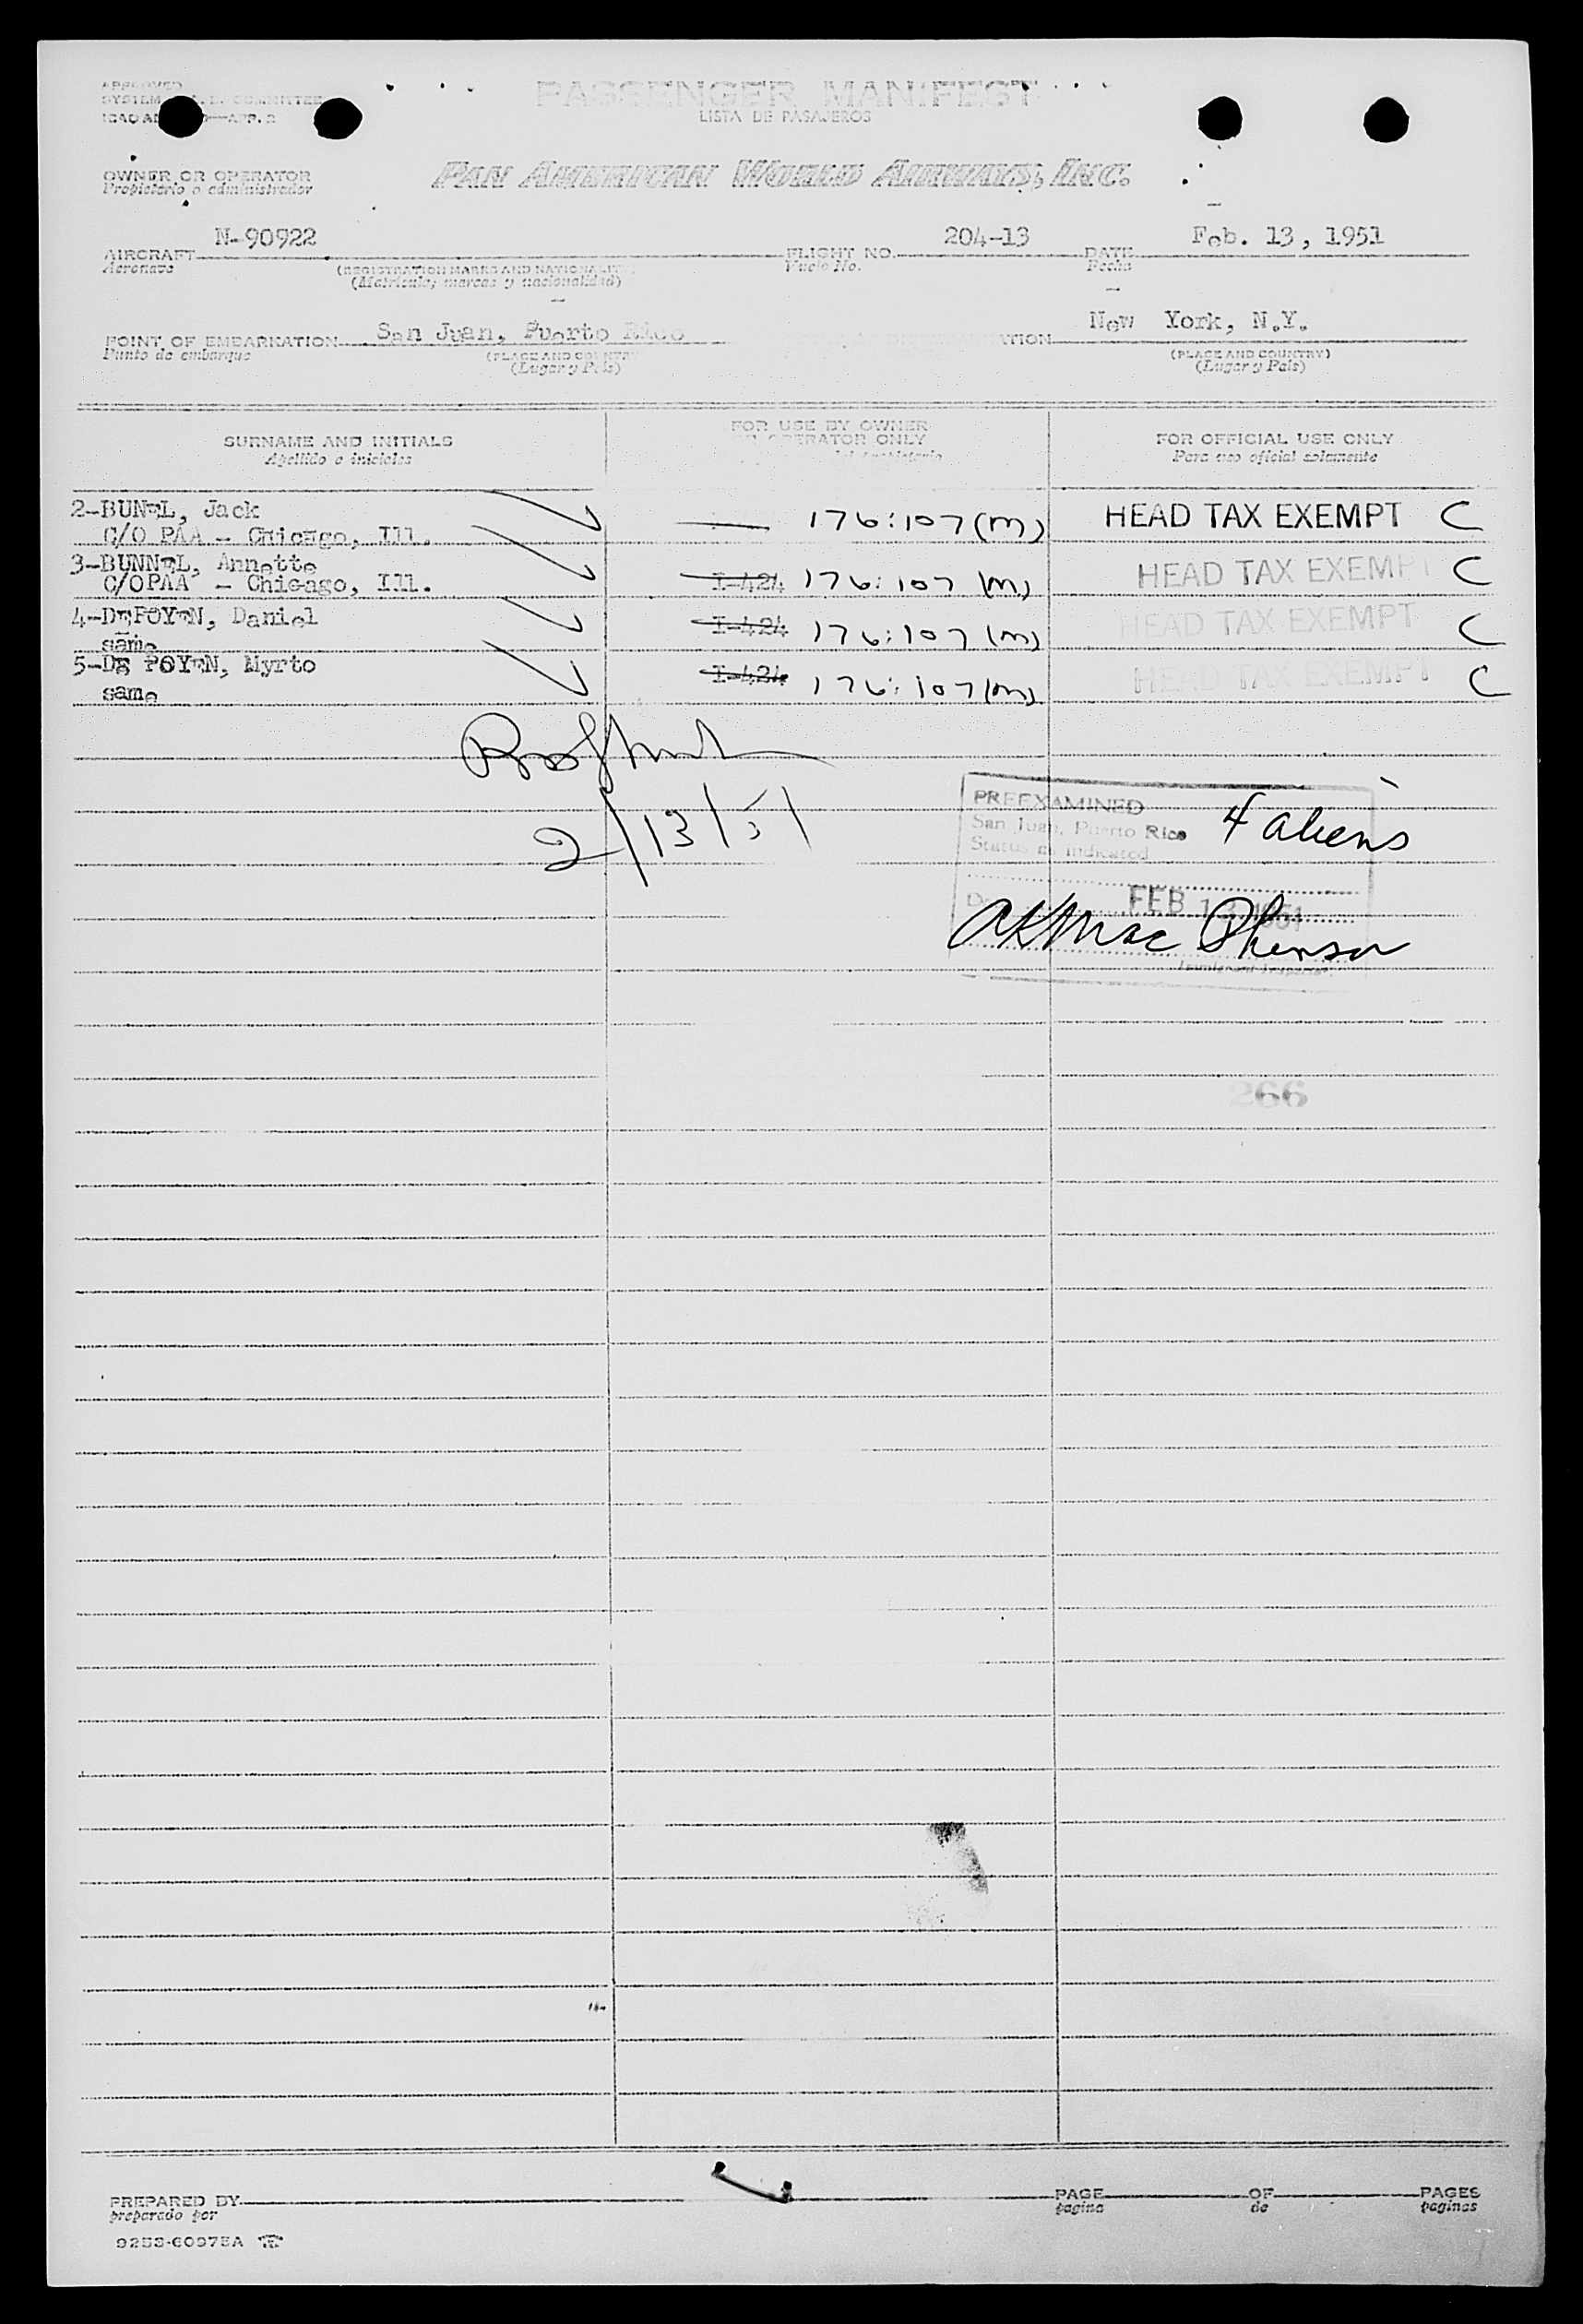 APPROVED
SYSTEM COMMITTEE
APP. 2
PASSENGER MANIFEST
LISTA DE PASAJEROS
OWNER OR OPERATOR
Propietario o administrador
PAN AMERICAN WORLD AIRWAYS, INC.
AIRCRAFT N-90922 FLIGHT NO. 204-13 DATE Feb. 13, 1951
Aeronave (REGISTRATION MARKS AND NATIONALITY) Vuelo No. Fecha
(Matricula, marcas y nacionalidad)
POINT OF EMBARKATION San Juan, Puerto Rico New York, N.Y.
Punto de embarque (PLACE AND COUNTRY) (PLACE AND COUNTRY)
(Lugar y País) (Lugar y País)
SURNAME AND INITIALS FOR USE BY OWNER OR OPERATOR ONLY FOR OFFICIAL USE ONLY
Apellido e iniciales Para uso oficial solamente
2-BUNEL, Jack 176:107(m) HEAD TAX EXEMPT C
C/O PAA - Chicago, Ill.
3-BUNNEL, Annette I-424 176:107 (m) HEAD TAX EXEMPT C
C/OPAA - Chicago, Ill.
4-DEPOYEN, Daniel I-424 176:107 (m) HEAD TAX EXEMPT C
same
5-DE POYEN, Myrto I-424 176:107(m) HEAD TAX EXEMPT C
same
2/13/51
PREEXAMINED
San Juan, Puerto Rico 4 aliens
Status as indicated
FEB 13 1951
266
PREPARED BY PAGE OF PAGES
preparado por pagina de paginas
9253-60975A